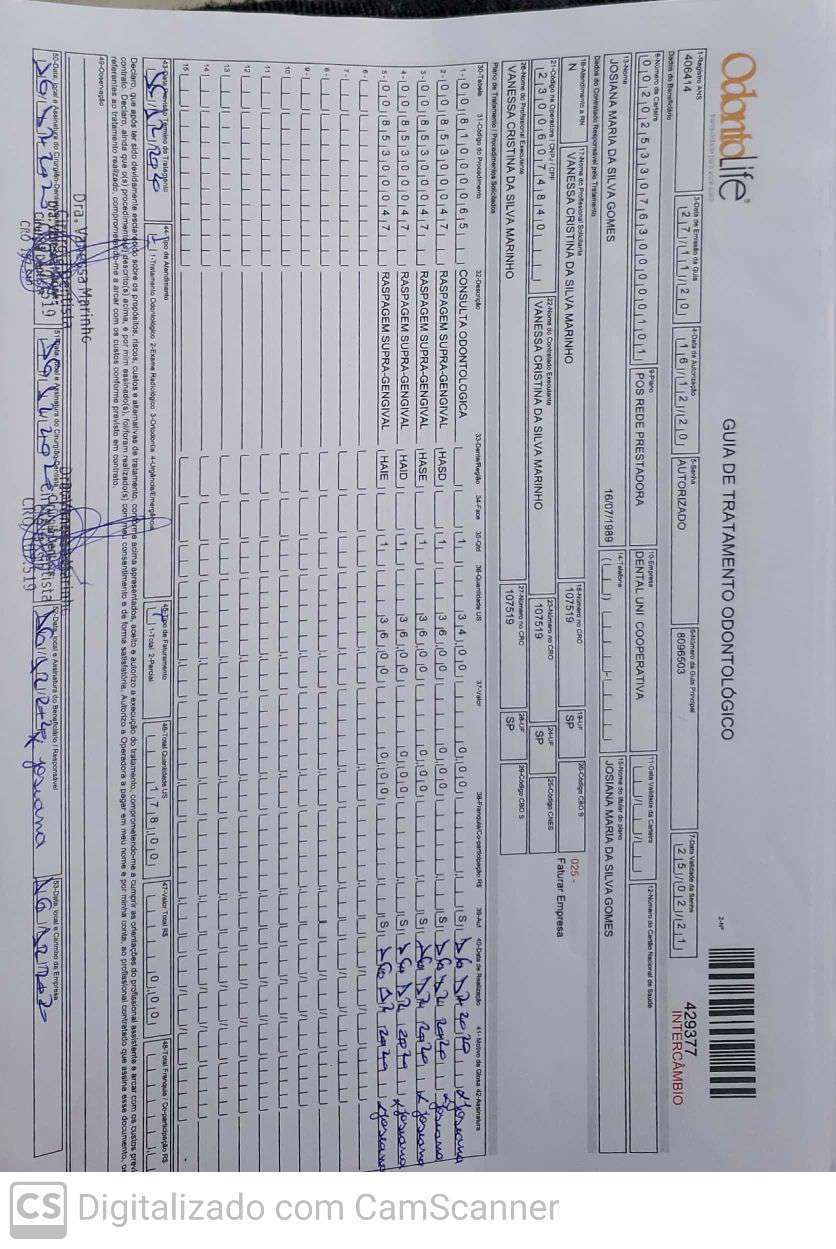 OdontoLife®
GUIA DE TRATAMENTO ODONTOLÓGICO
2-Nº
429377
INTERCÂMBIO
1-Registro ANS
406414
3-Data de Emissão da Guia
27/11/20
4-Data de Autorização
16/12/20
5-Senha
AUTORIZADO
6-Número da Guia Principal
8096503
7-Data Validade da Senha
25/02/21
Dados do Beneficiário
8-Número da Carteira
00202533076300000101
9-Plano
POS REDE PRESTADORA
10-Empresa
DENTAL UNI COOPERATIVA
11-Data Validade da Carteira
12-Número do Cartão Nacional de Saúde
13-Nome
JOSIANA MARIA DA SILVA GOMES
16/07/1989
14-Telefone
15-Nome do titular do plano
JOSIANA MARIA DA SILVA GOMES
Dados do Contratado Responsável pelo Tratamento
16-Atendimento a RN
N
17-Nome do Profissional Solicitante
VANESSA CRISTINA DA SILVA MARINHO
18-Número no CRO
107519
19-UF
SP
20-Código CBO S
025 -
Faturar Empresa
21-Código na Operadora / CNPJ / CPF
23006074840
22-Nome do Contratado Executante
VANESSA CRISTINA DA SILVA MARINHO
23-Número no CRO
107519
24-UF
SP
25-Código CNES
26-Nome do Profissional Executante
VANESSA CRISTINA DA SILVA MARINHO
27-Número no CRO
107519
28-UF
SP
29-Código CBO S
Plano de Tratamento / Procedimentos Solicitados
30-Tabela 31-Código do Procedimento 32-Descrição 33-Dente/Região 34-Face 35-Qtd 36-Quantidade US 37-Valor 38-Franquia/Co-participação R$ 39-Aut 40-Data de Realização 41-Motivo da Glosa 42-Assinatura
1- 00 81000065 CONSULTA ODONTOLOGICA 1 34,00 0,00 S 16/12/2020 Josiana
2- 00 85300047 RASPAGEM SUPRA-GENGIVAL HASD 1 36,00 0,00 S 16/12/2020 Josiana
3- 00 85300047 RASPAGEM SUPRA-GENGIVAL HASE 1 36,00 0,00 S 16/12/2020 Josiana
4- 00 85300047 RASPAGEM SUPRA-GENGIVAL HAID 1 36,00 0,00 S 16/12/2020 Josiana
5- 00 85300047 RASPAGEM SUPRA-GENGIVAL HAIE 1 36,00 0,00 S 16/12/2020 Josiana
6-
7-
8-
9-
10
11
12
13
14
15
43-Data Previsão Término do Tratamento
44-Tipo de Atendimento
1-Tratamento Odontológico 2-Exame Radiológico 3-Ortodontia 4-Urgência/Emergência
45-Tipo de Faturamento
1-Total 2-Parcial
46-Total Quantidade US
178,00
47-Valor Total R$
0,00
48-Total Franquia / Co-participação R$
Declaro, que após ter sido devidamente esclarecido sobre os propósitos, riscos, custos e alternativas de tratamento, conforme acima apresentados, aceito e autorizo a execução do tratamento, comprometendo-me a cumprir as orientações do profissional assistente e arcar com os custos
contrato. Declaro, ainda que o(s) procedimento(s) descrito(s) acima, e por mim assinado(s), foi/foram realizado(s) com meu consentimento e de forma satisfatória. Autorizo a Operadora a pagar em meu nome e por minha conta, ao profissional contratado que assina esse documento,
referentes ao tratamento realizado, comprometendo-me a arcar com os custos conforme previsto em contrato.
49-Observação
Dra. Vanessa Marinho
50-Data, local e Assinatura do Cirurgião-Dentista
51-Data, local e Assinatura do Cirurgião-Dentista
52-Data, local e Assinatura do Beneficiário / Responsável
Josiana
53-Data, local e Carimbo da Empresa
CS Digitalizado com CamScanner